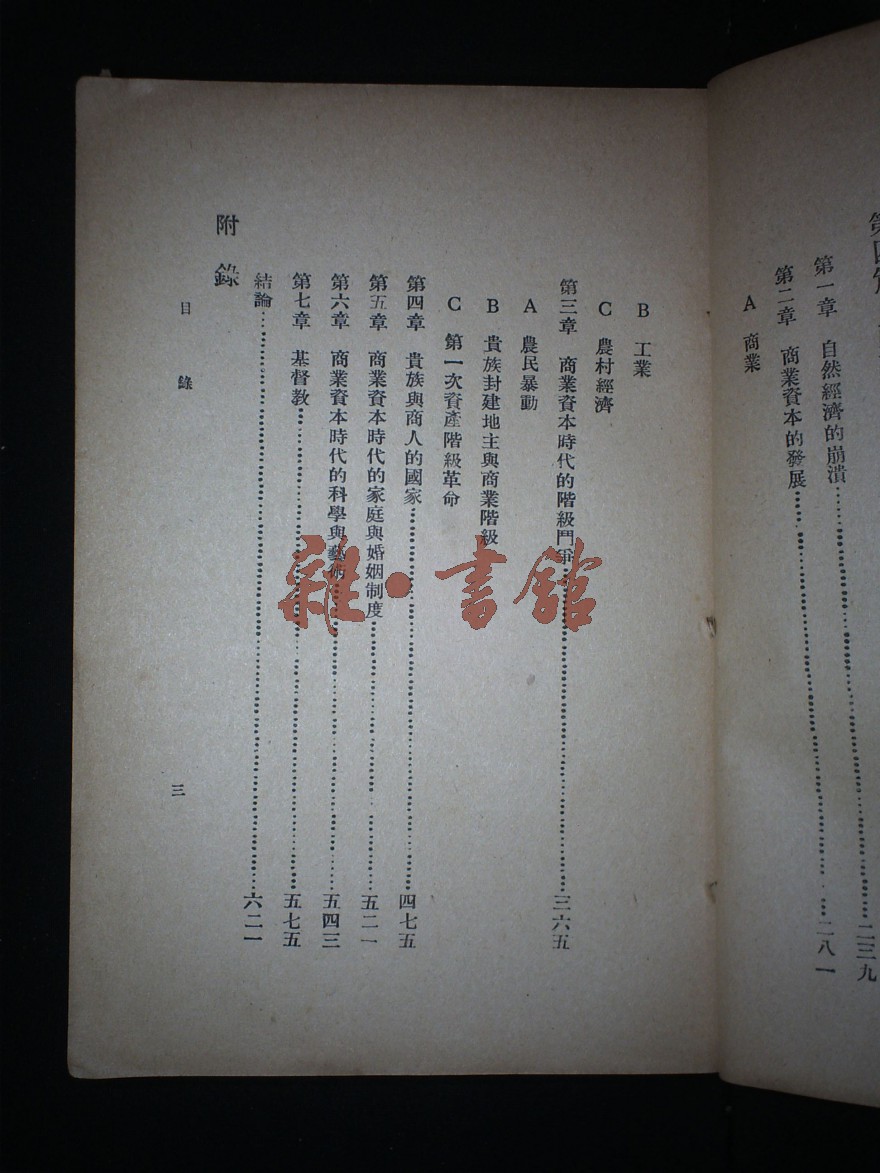 第一章　自然經濟的崩潰……二三九
第二章　商業資本的發展……二八一
A　商業
B　工業
C　農村經濟
第三章　商業資本時代的階級鬥爭……三六五
A　農民暴動
B　貴族封建地主與商業階級
C　第一次資產階級革命
第四章　貴族與商人的國家……四七五
第五章　商業資本時代的家庭與婚姻制度……五二一
第六章　商業資本時代的科學與藝術……五四三
第七章　基督教……五七五
結論……六二一
附錄
目錄
三
雜·書館